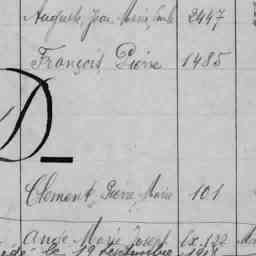 Auguste, Jean Marie, Emile 2447
François Pierre 1485
D
Clément, Pierre, Marie 101
Ange Marie Joseph Ex. 122
dé le 19 septembre 1918